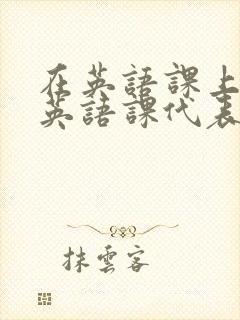 在英語課上
英語課代表
抹雲客